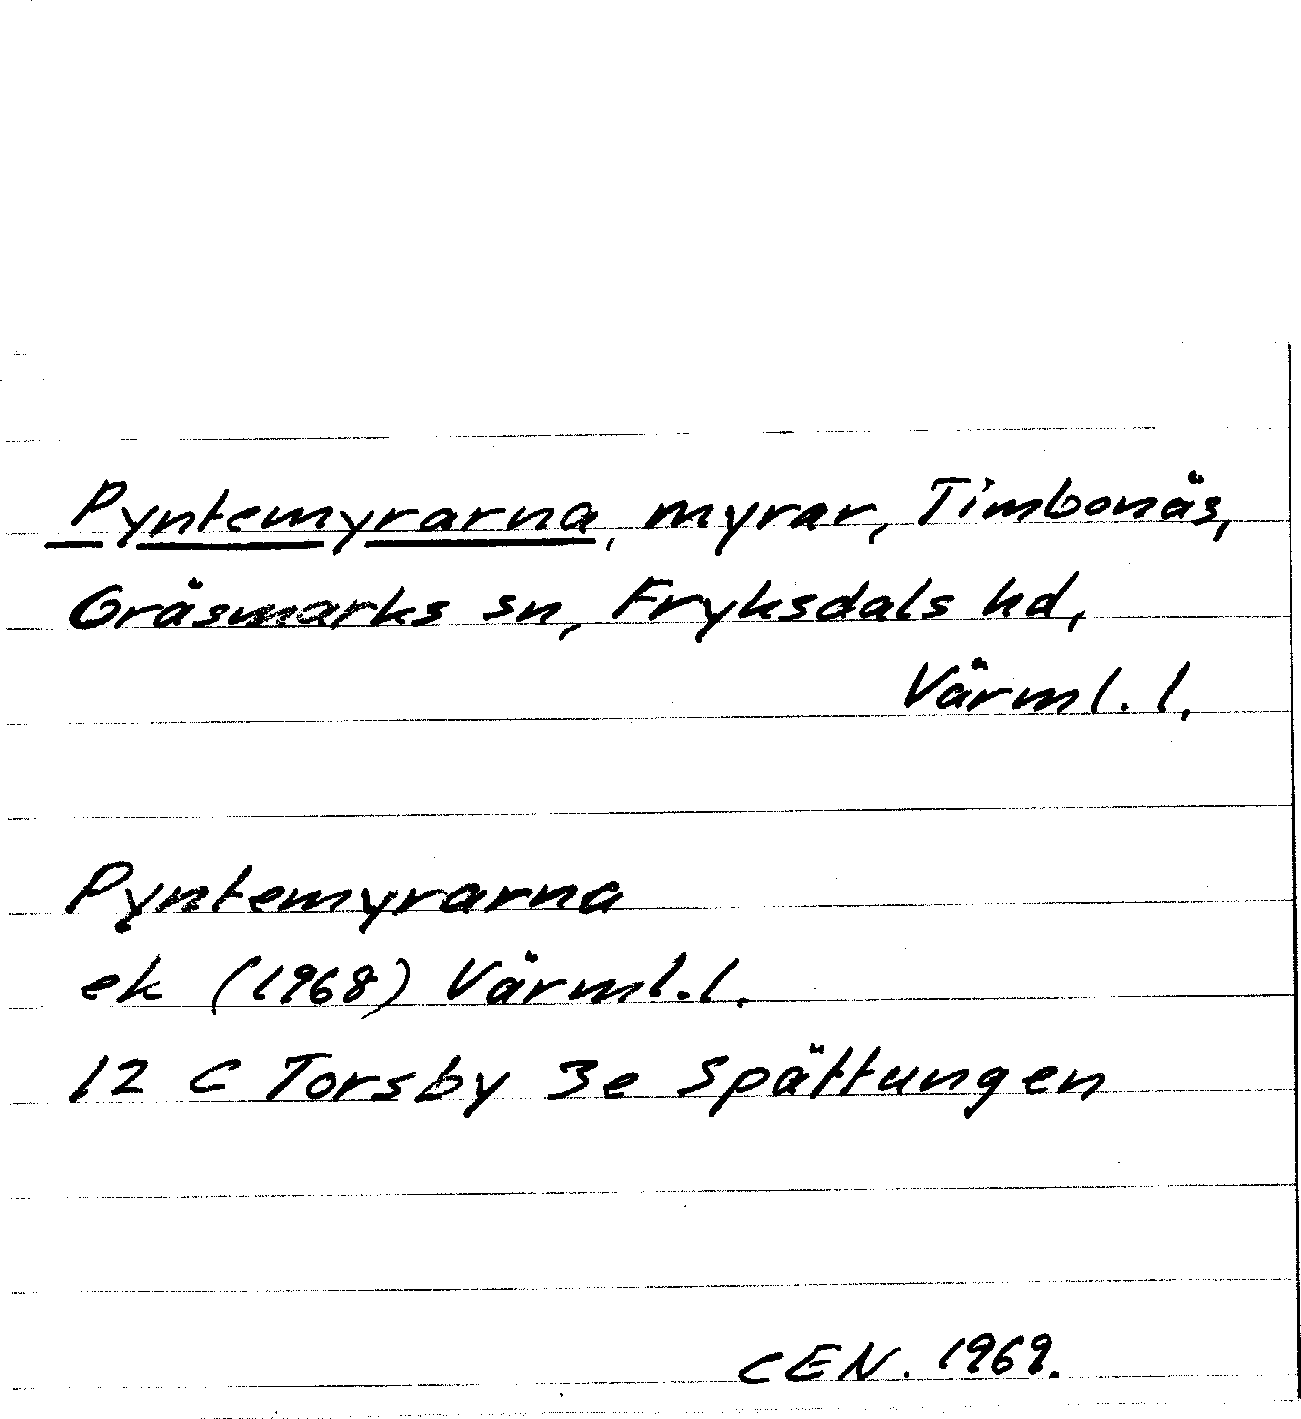 Pyntemyrarna, myrar, Timbonäs,
Gräsmarks sn, Fryksdals hd,
Värml. l.
Pyntemyrarna
ek (1968) Värml. l.
12 C Torsby 3e Spättungen
CEN. 1969.